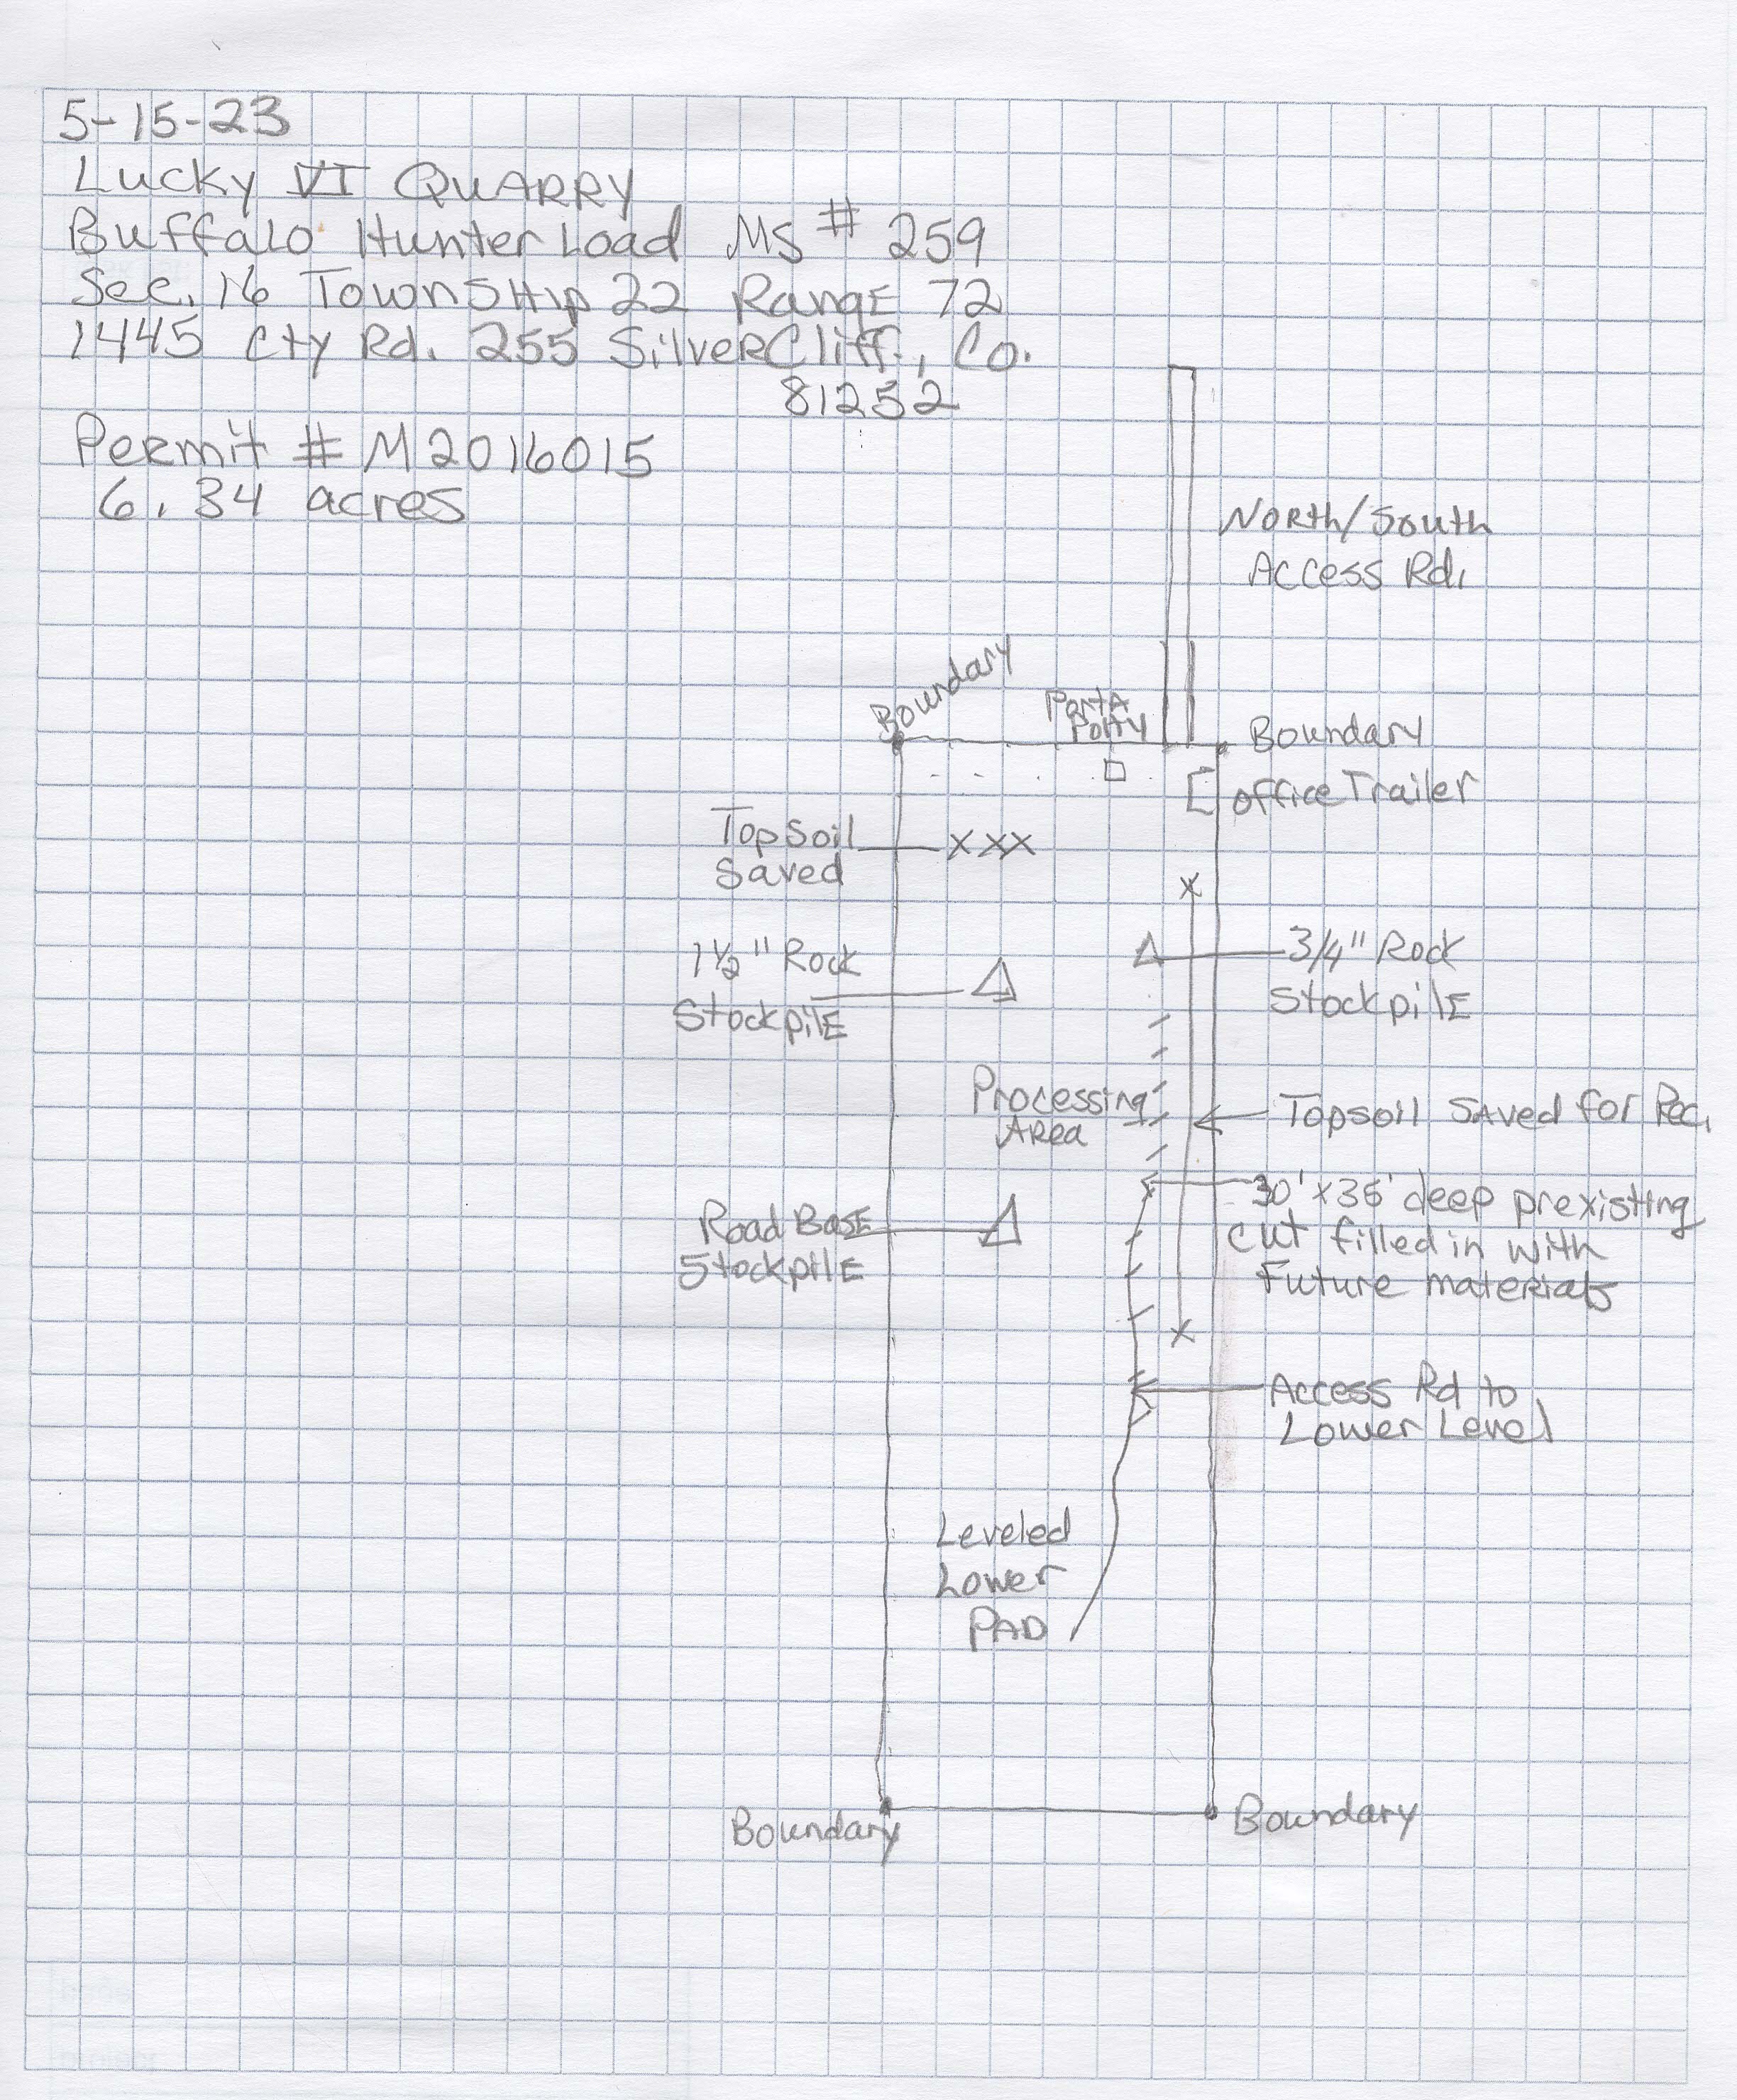 5-15-23
Lucky VI QUARRY
Buffalo Hunter Load MS # 259
Sec. 16 Township 22 Range 72
1445 Cty Rd. 255 SilverCliff, Co.
81252
Permit # M2016015
6.34 acres
North/South
Access Rd.
Boundary
Porta
Potty
Boundary
office Trailer
Topsoil
Saved
XXX
X
1½" Rock
Stockpile
3/4" Rock
Stockpile
Processing
Area
Topsoil Saved for Rec.
30'x36' deep prexisting
cut filled in with
Future materials
Road Base
Stockpile
X
Access Rd to
Lower Level
Leveled
Lower
PAD
Boundary
Boundary